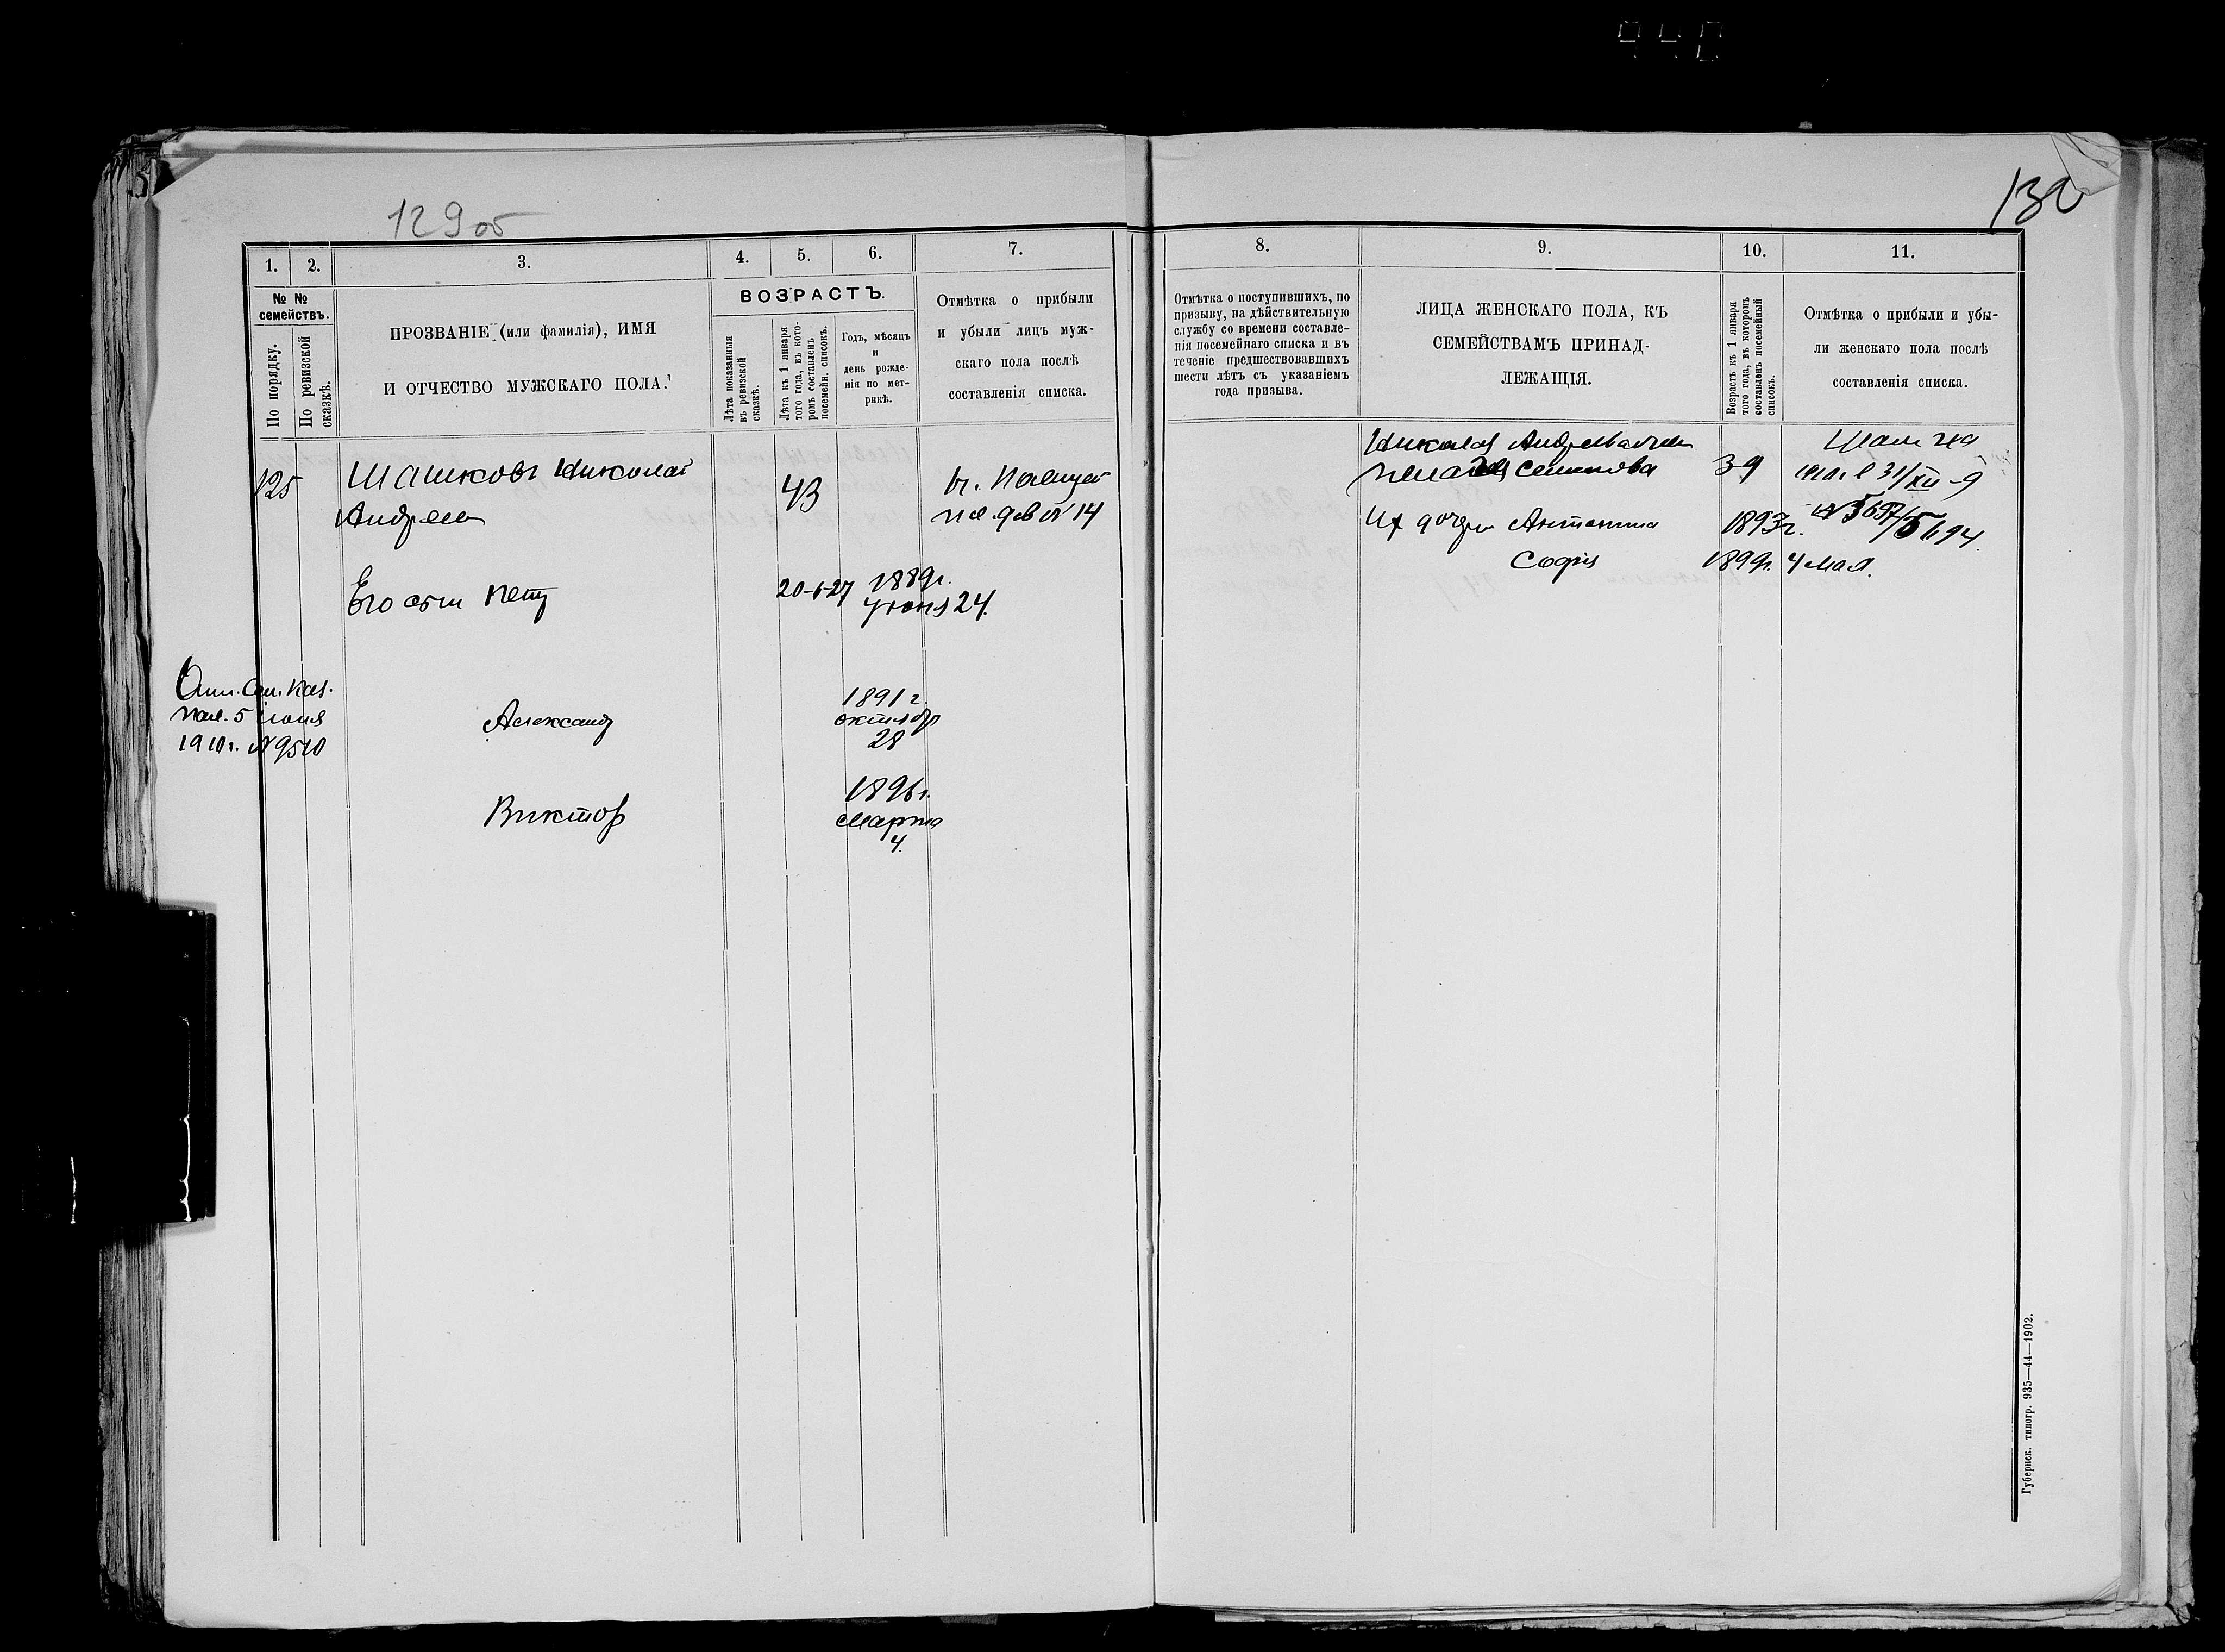 940
129 об
130
1. 2. 3. 4. 5. 6. 7.
№ №
семействъ.
По порядку.
По ревизской
сказкѣ.
ПРОЗВАНІЕ (или фамилія), ИМЯ
И ОТЧЕСТВО МУЖСКАГО ПОЛА.
ВОЗРАСТЪ.
Лѣта показанныя
въ ревизской
сказкѣ.
Лѣта къ 1 января
того года, въ кото-
ромъ составленъ
посемейн. списокъ.
Годъ, мѣсяцъ
и
день рожде-
нія по мет-
рикѣ.
Отмѣтка о прибыли
и убыли лицъ муж-
скаго пола послѣ
составленія списка.
125
Шашковъ Николай
Андреев
43
14
Его сын Петр
20-6-27
1889г.
июня 24.
Каз.
пал. 5 июня
1910г. № 9510
Александр
1891 г.
октября
28
Виктор
1896г.
Марта
4.
8. 9. 10. 11.
Отмѣтка о поступившихъ, по
призыву, на дѣйствительную
службу со времени составле-
нія посемейнаго списка и въ
теченіе предшествовавшихъ
шести лѣтъ съ указаніемъ
года призыва.
ЛИЦА ЖЕНСКАГО ПОЛА, КЪ
СЕМЕЙСТВАМЪ ПРИНАД-
ЛЕЖАЩІЯ.
Возрастъ къ 1 января
того года, въ которомъ
составленъ посемейный
списокъ.
Отмѣтка о прибыли и убы-
ли женскаго пола послѣ
составленія списка.
Николая Андреевича
жена Семенова
39
31/XII-9
Их дочери Антонина
1893г.
№ 5697/5694.
Софія
1899г. 4 мая.
Губернск. типогр. 935—44—1902.